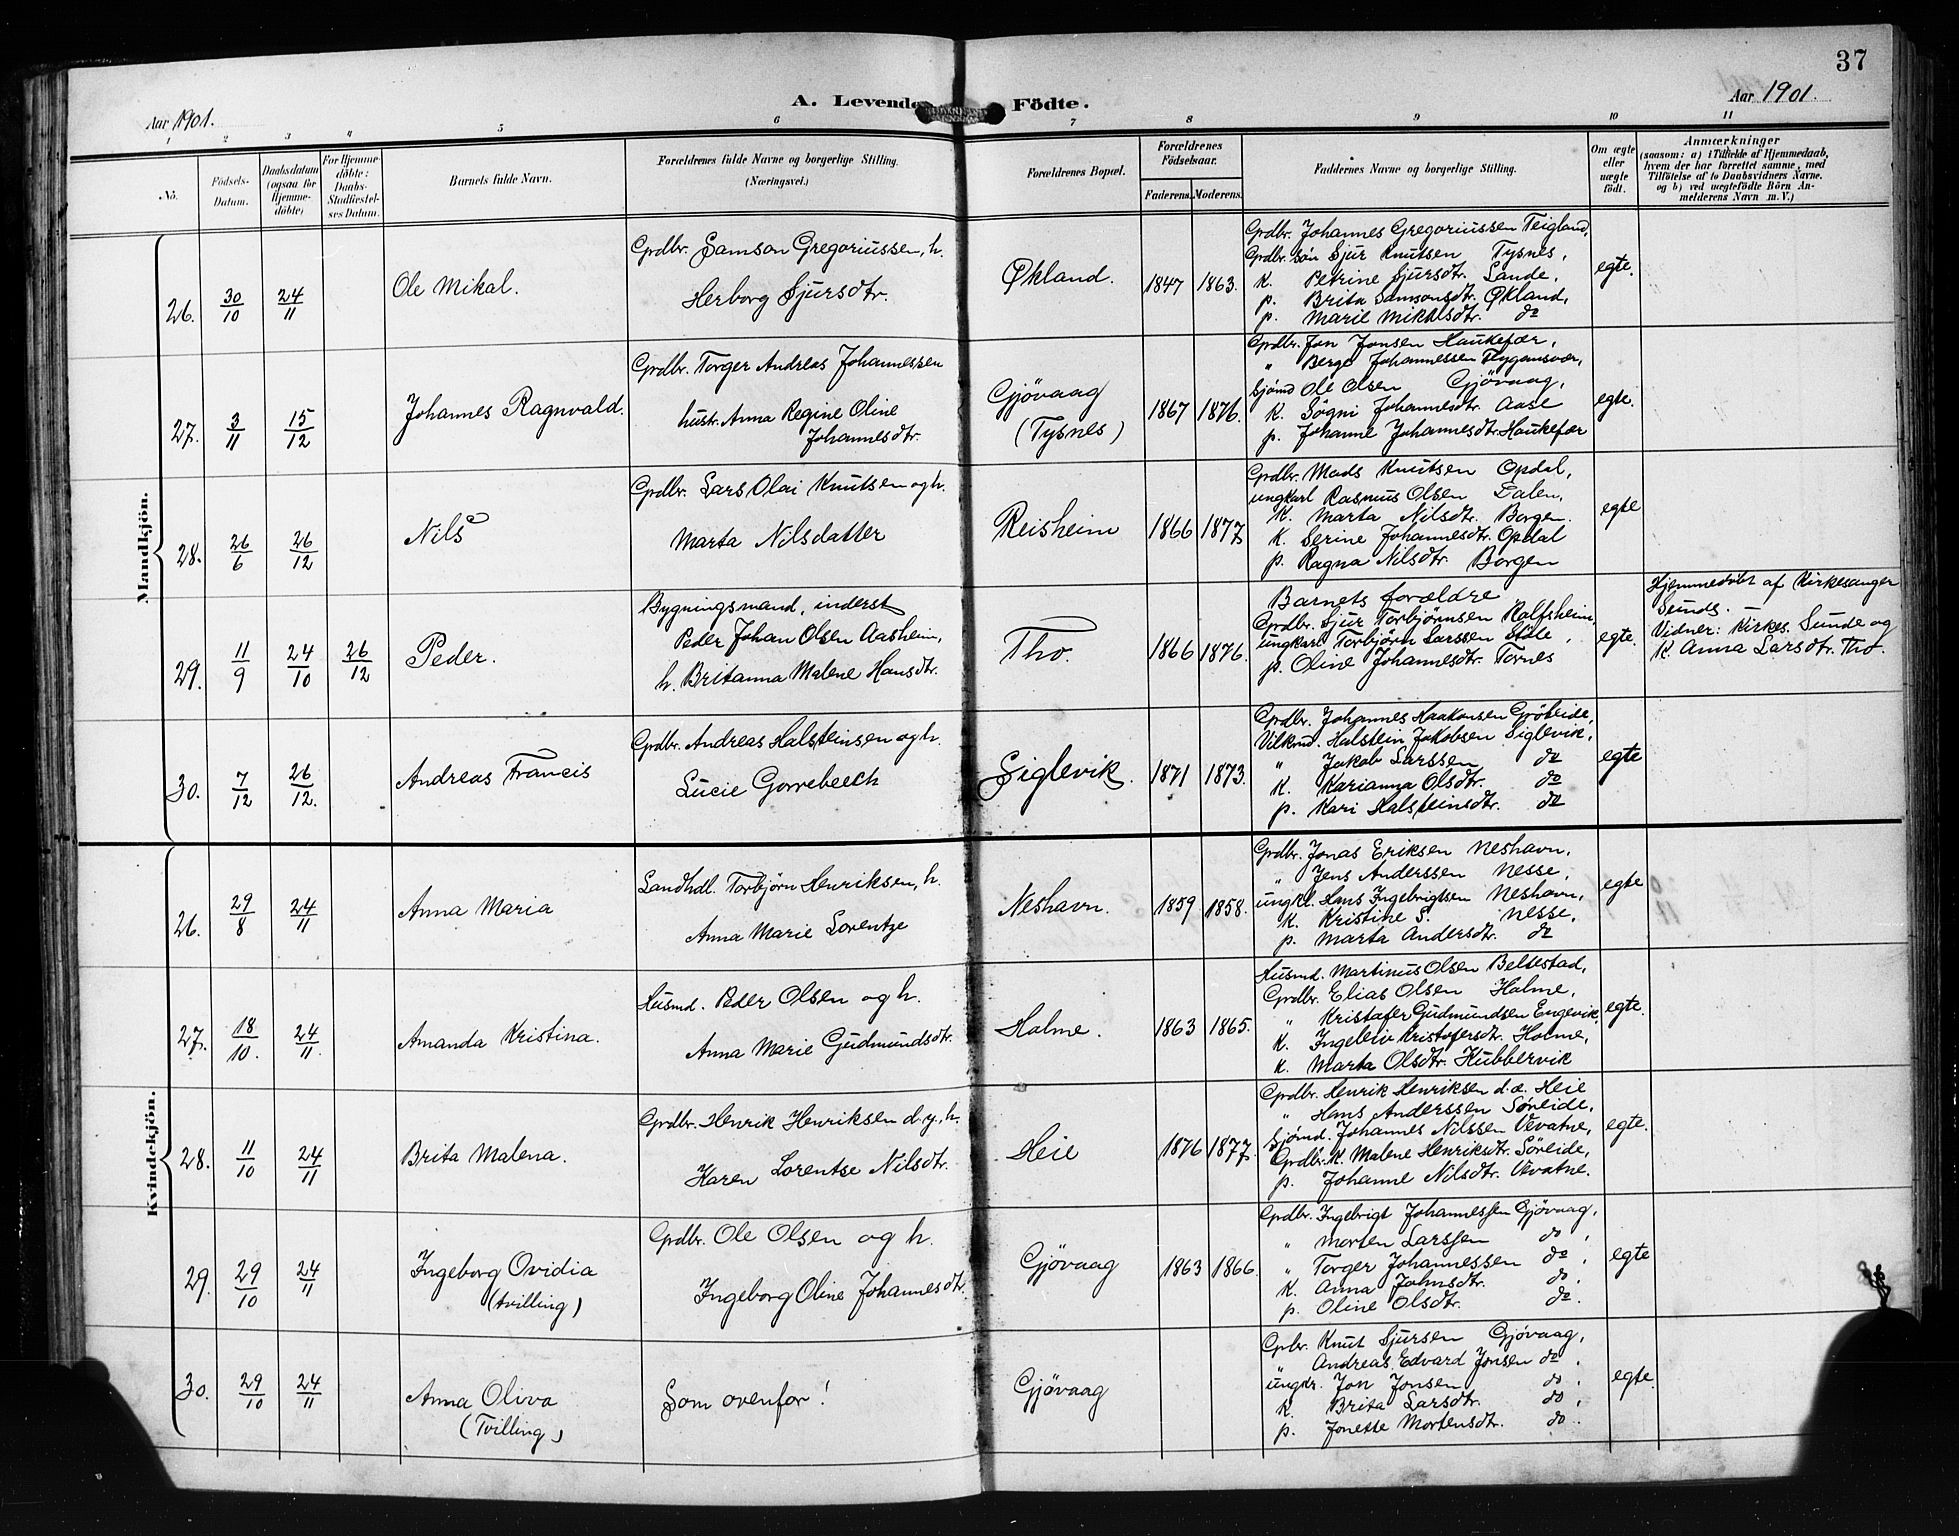 37
A. Levende Födte.
Aar 1901.
Aar 1901.
1 2 3 4 5 6 7 8 9 10 11
No.
Födsels-Datum.
Daabsdatum (ogsaa for Hjemme-döbte)
For Hjemme-döbte: Daabs-Stadfæstel-ses Datum.
Barnets fulde Navn.
Forældrenes fulde Navne og borgerlige Stilling. (Næringsvei.)
Forældrenes Bopæl.
Forældrenes Födselsaar.
Faderens. Moderens.
Faddernes Navne og borgerlige Stilling.
Om ægte eller uægte födt.
Anmærkninger
(saasom: a) i Tilfælde af Hjemmedaab, hvem der har forrettet samme, med Tilföielse af to Daabsvidners Navne, og b) ved uægtefödte Börn An-melderens Navn m. V.)
Mandkjön.
26. 30/10 24/11 Ole Mikal.
Grdbr. Samson Gregoriussen, h.
Herborg Sjursdtr.
Økland. 1847 1863.
Grdbr. Johannes Gregoriussen Teigland,
Grdbr. søn Sjur Knutsen Tysnes,
K. Petrine Sjursdtr. Sande,
p. Brita Samsonsdtr. Økland,
p. Marie Mikalsdtr. do
egte.
27. 3/11 15/12 Johannes Ragnvald.
Grdbr. Torger Andreas Johannessen
hustr. Anna Regine Oline
Johannesdtr.
Gjövaag
(Tysnes)
1867 1876.
Grdbr. Jon Jonsen Haukefær,
" Berge Johannessen Flygansvær,
Sjömd Ole Olsen Gjövaag,
K. Sögni Johannesdtr. Aase
p. Johanne Johannesdtr. Haukefær
egte.
28. 26/6 26/12 Nils
Grdbr. Lars Olai Knutsen og h.
Marta Nilsdatter
Reisheim 1866 1877
Grdbr. Mads Knutsen Opdal,
ungkarl Rasmus Olsen Dalen,
K. Marta Nilsdtr. Borgen.
K. Serine Johannesdtr. Opdal
p. Ragna Nilsdtr. Borgen
egte
29. 11/9 24/10 26/12 Peder.
Bygningsmand, inderst
Peder Johan Olsen Aasheim,
h. Britanna Malene Hansdtr.
Tho. 1866 1876.
Barnets forældre
Grdbr. Sjur Torbjörnsen Ralfsheim,
ungkarl Torbjörn Larssen Støle,
p. Oline Johannesdtr. Tornes
egte.
Hjemmedöbt af Kirkesanger
Sunde.
Vidner: Kirkes. Sunde og
K. Anna Larsdtr. Tho.
30. 7/12 26/12. Andreas Francis
Grdbr. Andreas Halsteinsen og h.
Lucie Gorrebeech
Siglevik. 1871 1873.
Grdbr. Johannes Haakonsen Gröteide,
Vilkmd. Halstein Jakobsen Siglevik,
" Jakob Larssen do
K. Karianna Olsdtr. do
p. Kari Halsteinsdtr. do
egte
Kvindekjön.
26. 29/8 24/11 Anna Maria
Landhdl. Torbjörn Henriksen, h.
Anna Marie Lorentze
Neshavn. 1859 1858.
Grdbr. Jonas Eriksen Neshavn,
" Jens Anderssen Nesse,
ungkl. Hans Ingebrigtsen Neshavn,
K. Kristine S. Nesse,
p. Marta Andersdtr. do
egte
27. 18/10. 24/11. Amanda Kristina.
Husmd. Peder Olsen og h.
Anna Marie Gudmundsdtr.
Holme. 1863 1865.
Husmd. Martinus Olsen Beltestad,
Grdbr. Elias Olsen Holme,
" Kristafer Gudmundsen Engevik,
K. Ingeleiv Kristofersdtr. Holme,
K. Marta Olsdtr. Hubbervik
egte.
28. 11/10 24/11 Brita Malena.
Grdbr. Henrik Henriksen d. y., h.
Karen Lorentse Nilsdtr.
Heie 1876 1877.
Grdbr. Henrik Henriksen d. æ. Heie
" Hans Anderssen Søreide,
Sjømd. Johannes Nilssen Vevatne,
Grdbr. K. Malene Henriksdtr. Søreide,
p. Johanne Nilsdtr. Vevatne.
egte.
29. 29/10 24/11 Ingeborg Ovidia
(tvilling)
Grdbr. Ole Olsen og h.
Ingeborg Oline Johannesdtr.
Gjövaag 1863 1866.
Grdbr. Ingebrigt Johannessen Gjövaag,
" Morten Larssen do,
" Torger Johannessen do,
K. Anna Johnsdtr. do.
p. Oline Olsdtr. do.
egte
30. 29/10 24/11 Anna Oliva
(Tvilling)
Som ovenfor!
Gjövaag
Grbr. Knut Sjursen Gjövaag,
" Andreas Edvard Jonsen do,
ungkr. Jon Jonsen do,
K. Brita Larsdtr. do,
p. Jonette Mortensdtr. do.
egte.